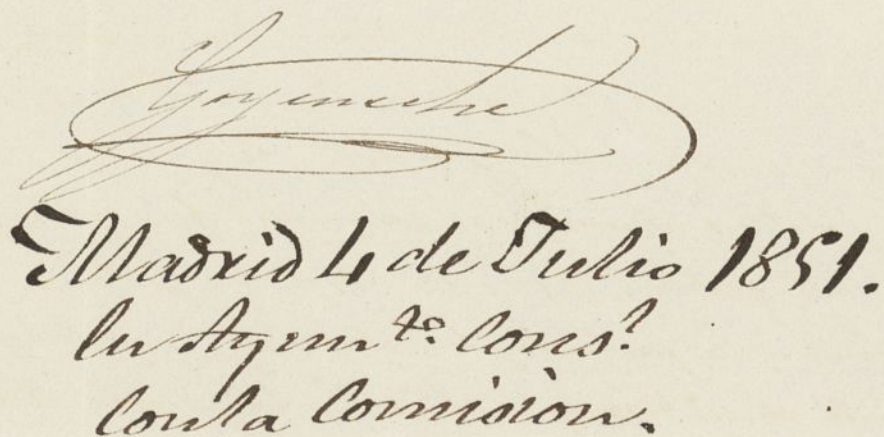 Goyeneche
Madrid 4 de Julio 1851.
En Ayunto. Cons.l
Con la Comision.